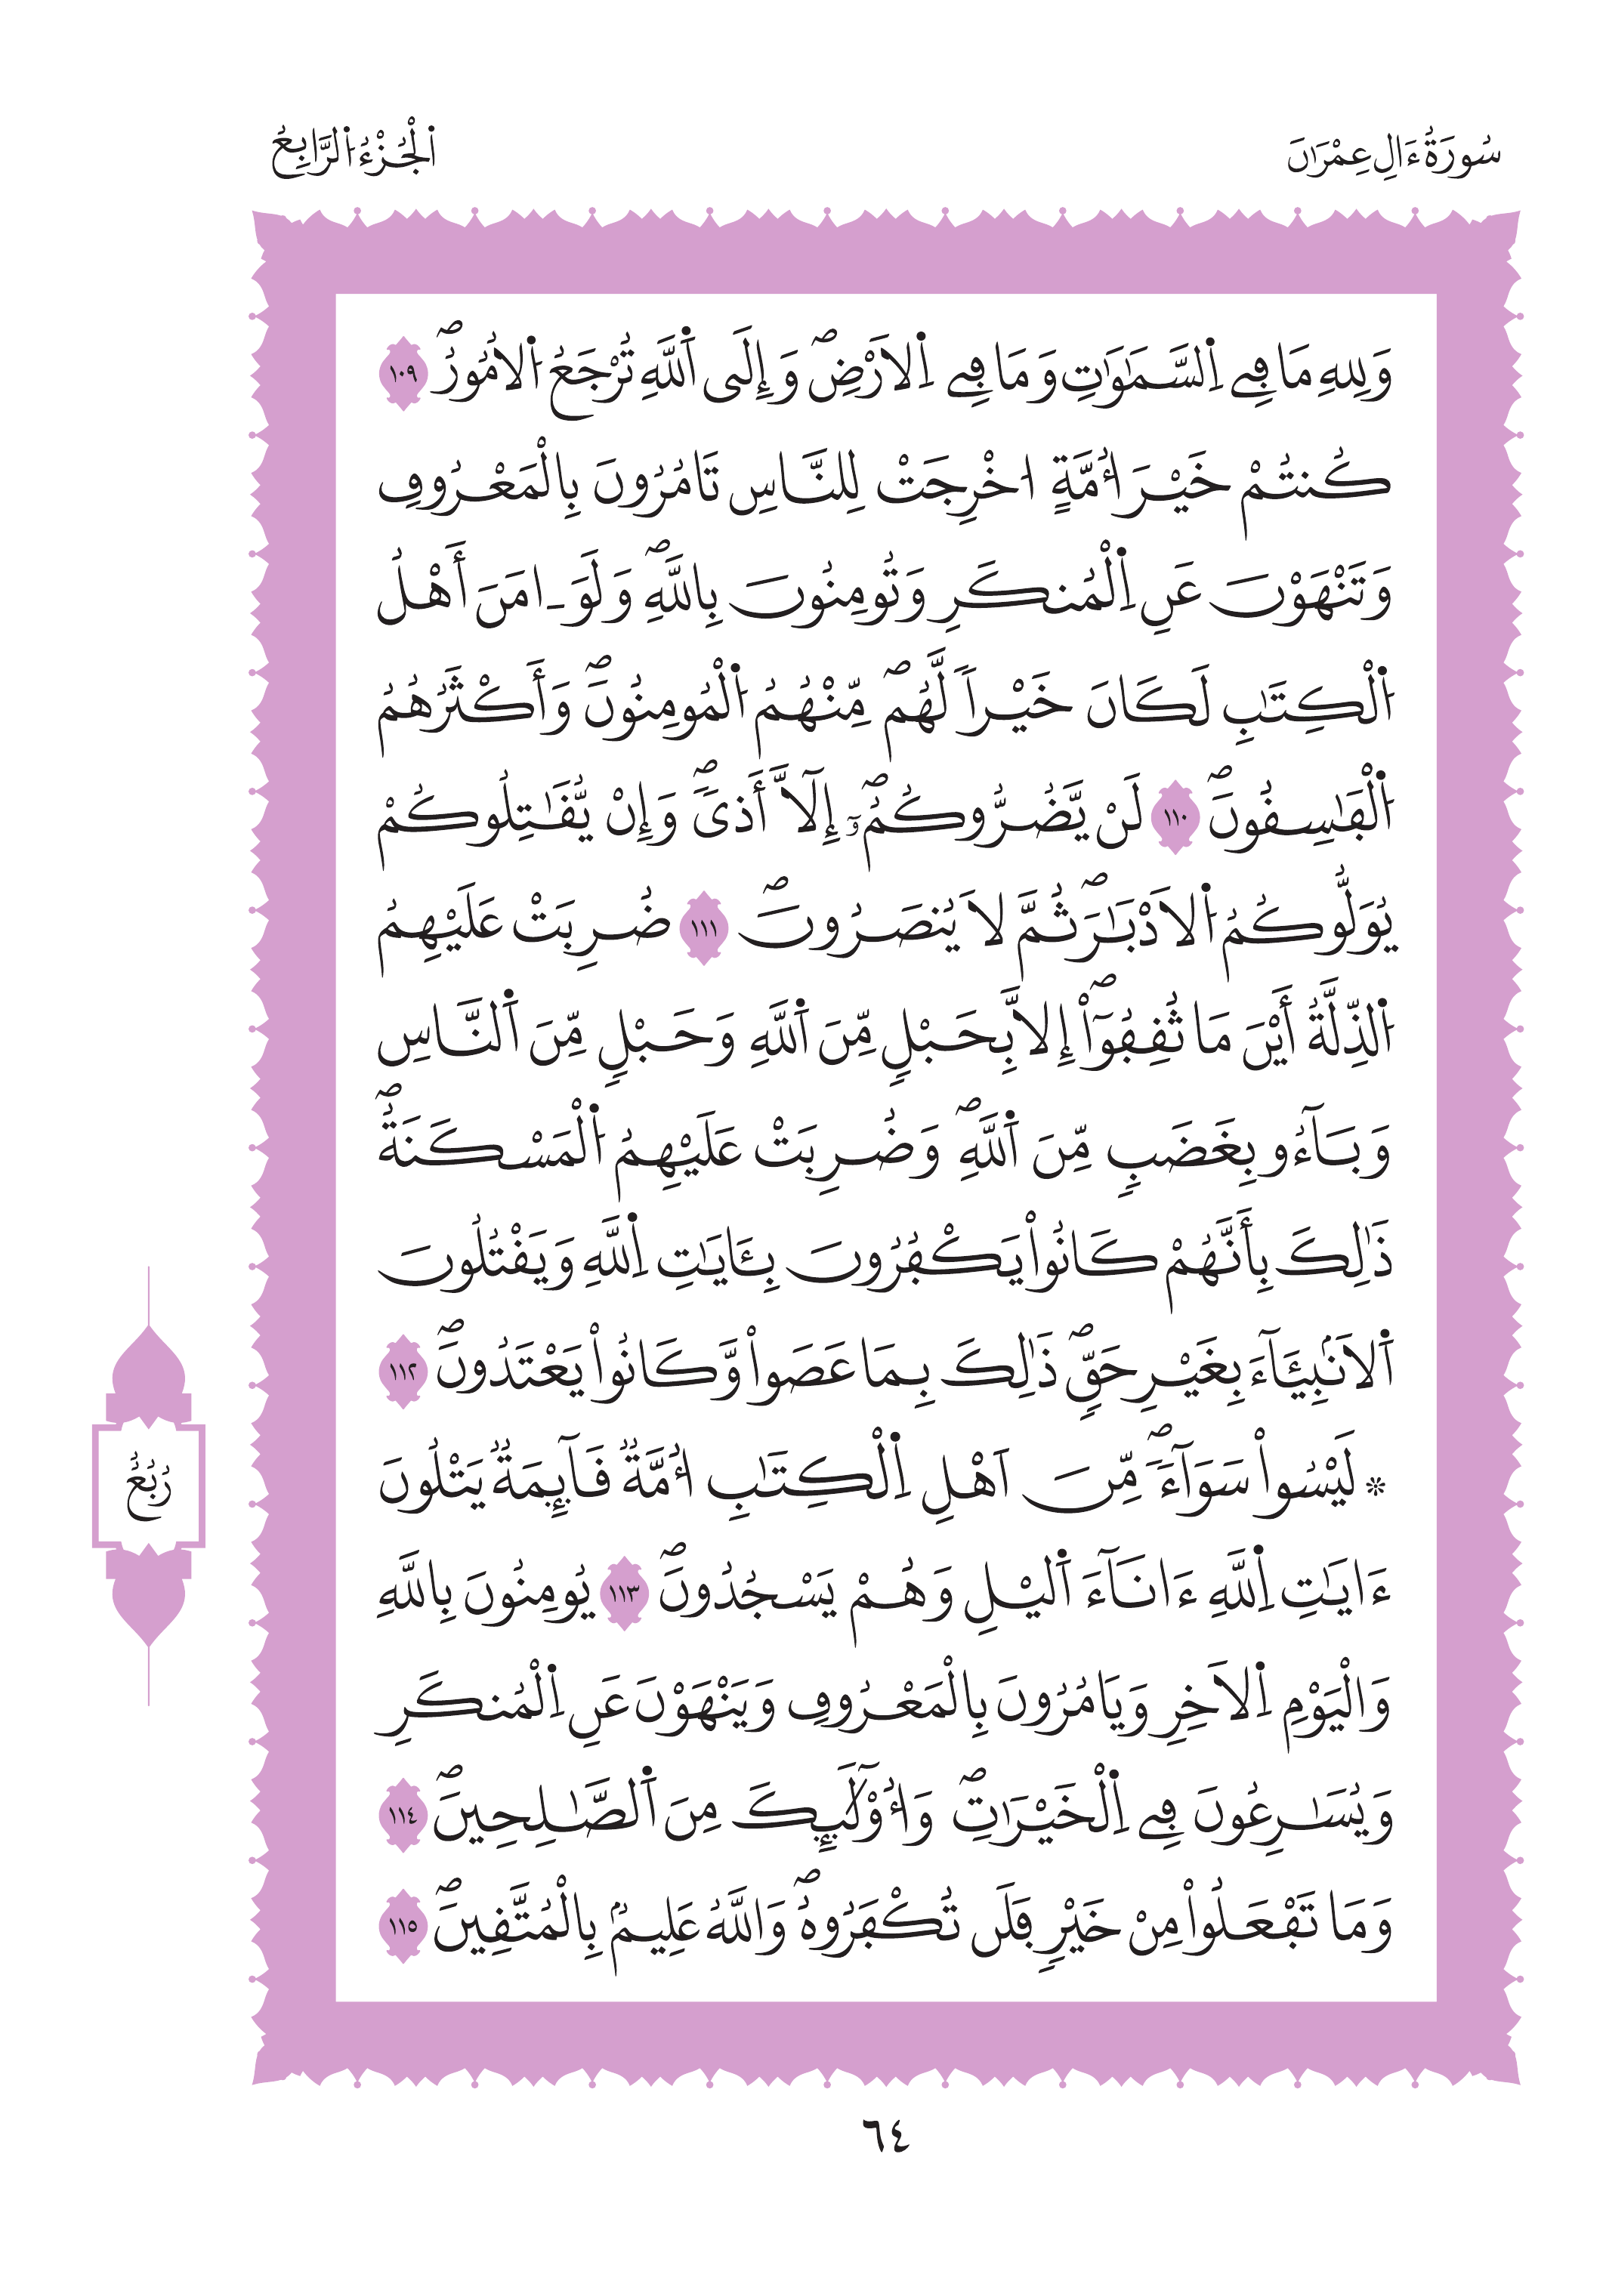 سُورَةُ ءَالِ عِمْرَٰنَ
اَ۬لْجُزْءُ اُ۬لرَّابِعُ
وَلِلهِ مَا فِے اِ۬لسَّمَٰوَٰتِ وَمَا فِے اِ۬لَارْضِۖ وَإِلَى اَ۬للَّهِ تُرْجَعُ اُ۬لُامُورُۖ ١٠٩
كُنتُمْ خَيْرَ أُمَّةٍ ا۟خْرِجَتْ لِلنَّاسِ تَامُرُونَ بِالْمَعْرُوفِ
وَتَنْهَوْنَ عَنِ اِ۬لْمُنكَرِ وَتُومِنُونَ بِاللَّهِۖ وَلَوَ ـ امَنَ أَهْلُ
اُ۬لْكِتَٰبِ لَكَانَ خَيْراٗ لَّهُمۖ مِّنْهُمُ اُ۬لْمُومِنُونَۖ وَأَكْثَرُهُمُ
اُ۬لْفَٰسِقُونَۖ ١١٠ لَنْ يَّضُرُّوكُمُۥٓۖ إِلَّآ أَذىٗۖ وَإِنْ يُّقَٰتِلُوكُمْ
يُوَلُّوكُمُ اُ۬لَادْبَٰرَۖ ثُمَّ لَا يُنصَرُونَۖ ١١١ ضُرِبَتْ عَلَيْهِمُ
اُ۬لذِّلَّةُ أَيْنَ مَا ثُقِفُوٓاْۖ إِلَّا بِحَبْلٍ مِّنَ اَ۬للَّهِ وَحَبْلٍ مِّنَ اَ۬لنَّاسِ
وَبَآءُو بِغَضَبٍ مِّنَ اَ۬للَّهِۖ وَضُرِبَتْ عَلَيْهِمُ اُ۬لْمَسْكَنَةُۖ
ذَٰلِكَ بِأَنَّهُمْ كَانُواْ يَكْفُرُونَ بِـَٔايَٰتِ اِ۬للَّهِ وَيَقْتُلُونَ
اَ۬لَانۢبِيَـَٔآءَ بِغَيْرِ حَقّٖۖ ذَٰلِكَ بِمَا عَصَواْ وَّكَانُواْ يَعْتَدُونَۖ ١١٢
۞ لَيْسُواْ سَوَآءٗۖ مِّنَ اَهْلِ اِ۬لْكِتَٰبِ أُمَّةٞ قَآئِمَةٞ يَتْلُونَ
ءَايَٰتِ اِ۬للَّهِ ءَانَآءَ اَ۬ليْلِ وَهُمْ يَسْجُدُونَۖ ١١٣ يُومِنُونَ بِاللَّهِ
وَالْيَوْمِ اِ۬لَاخِرِ وَيَامُرُونَ بِالْمَعْرُوفِ وَيَنْهَوْنَ عَنِ اِ۬لْمُنكَرِ
وَيُسَٰرِعُونَ فِے اِ۬لْخَيْرَٰتِۖ وَأُوْلَٰٓئِكَ مِنَ اَ۬لصَّٰلِحِينَۖ ١١٤
وَمَا تَفْعَلُواْ مِنْ خَيْرٖ فَلَن تُكْفَرُوهُۖ وَاللَّهُ عَلِيمُۢ بِالْمُتَّقِينَۖ ١١٥
رُبُعُ
٦٤